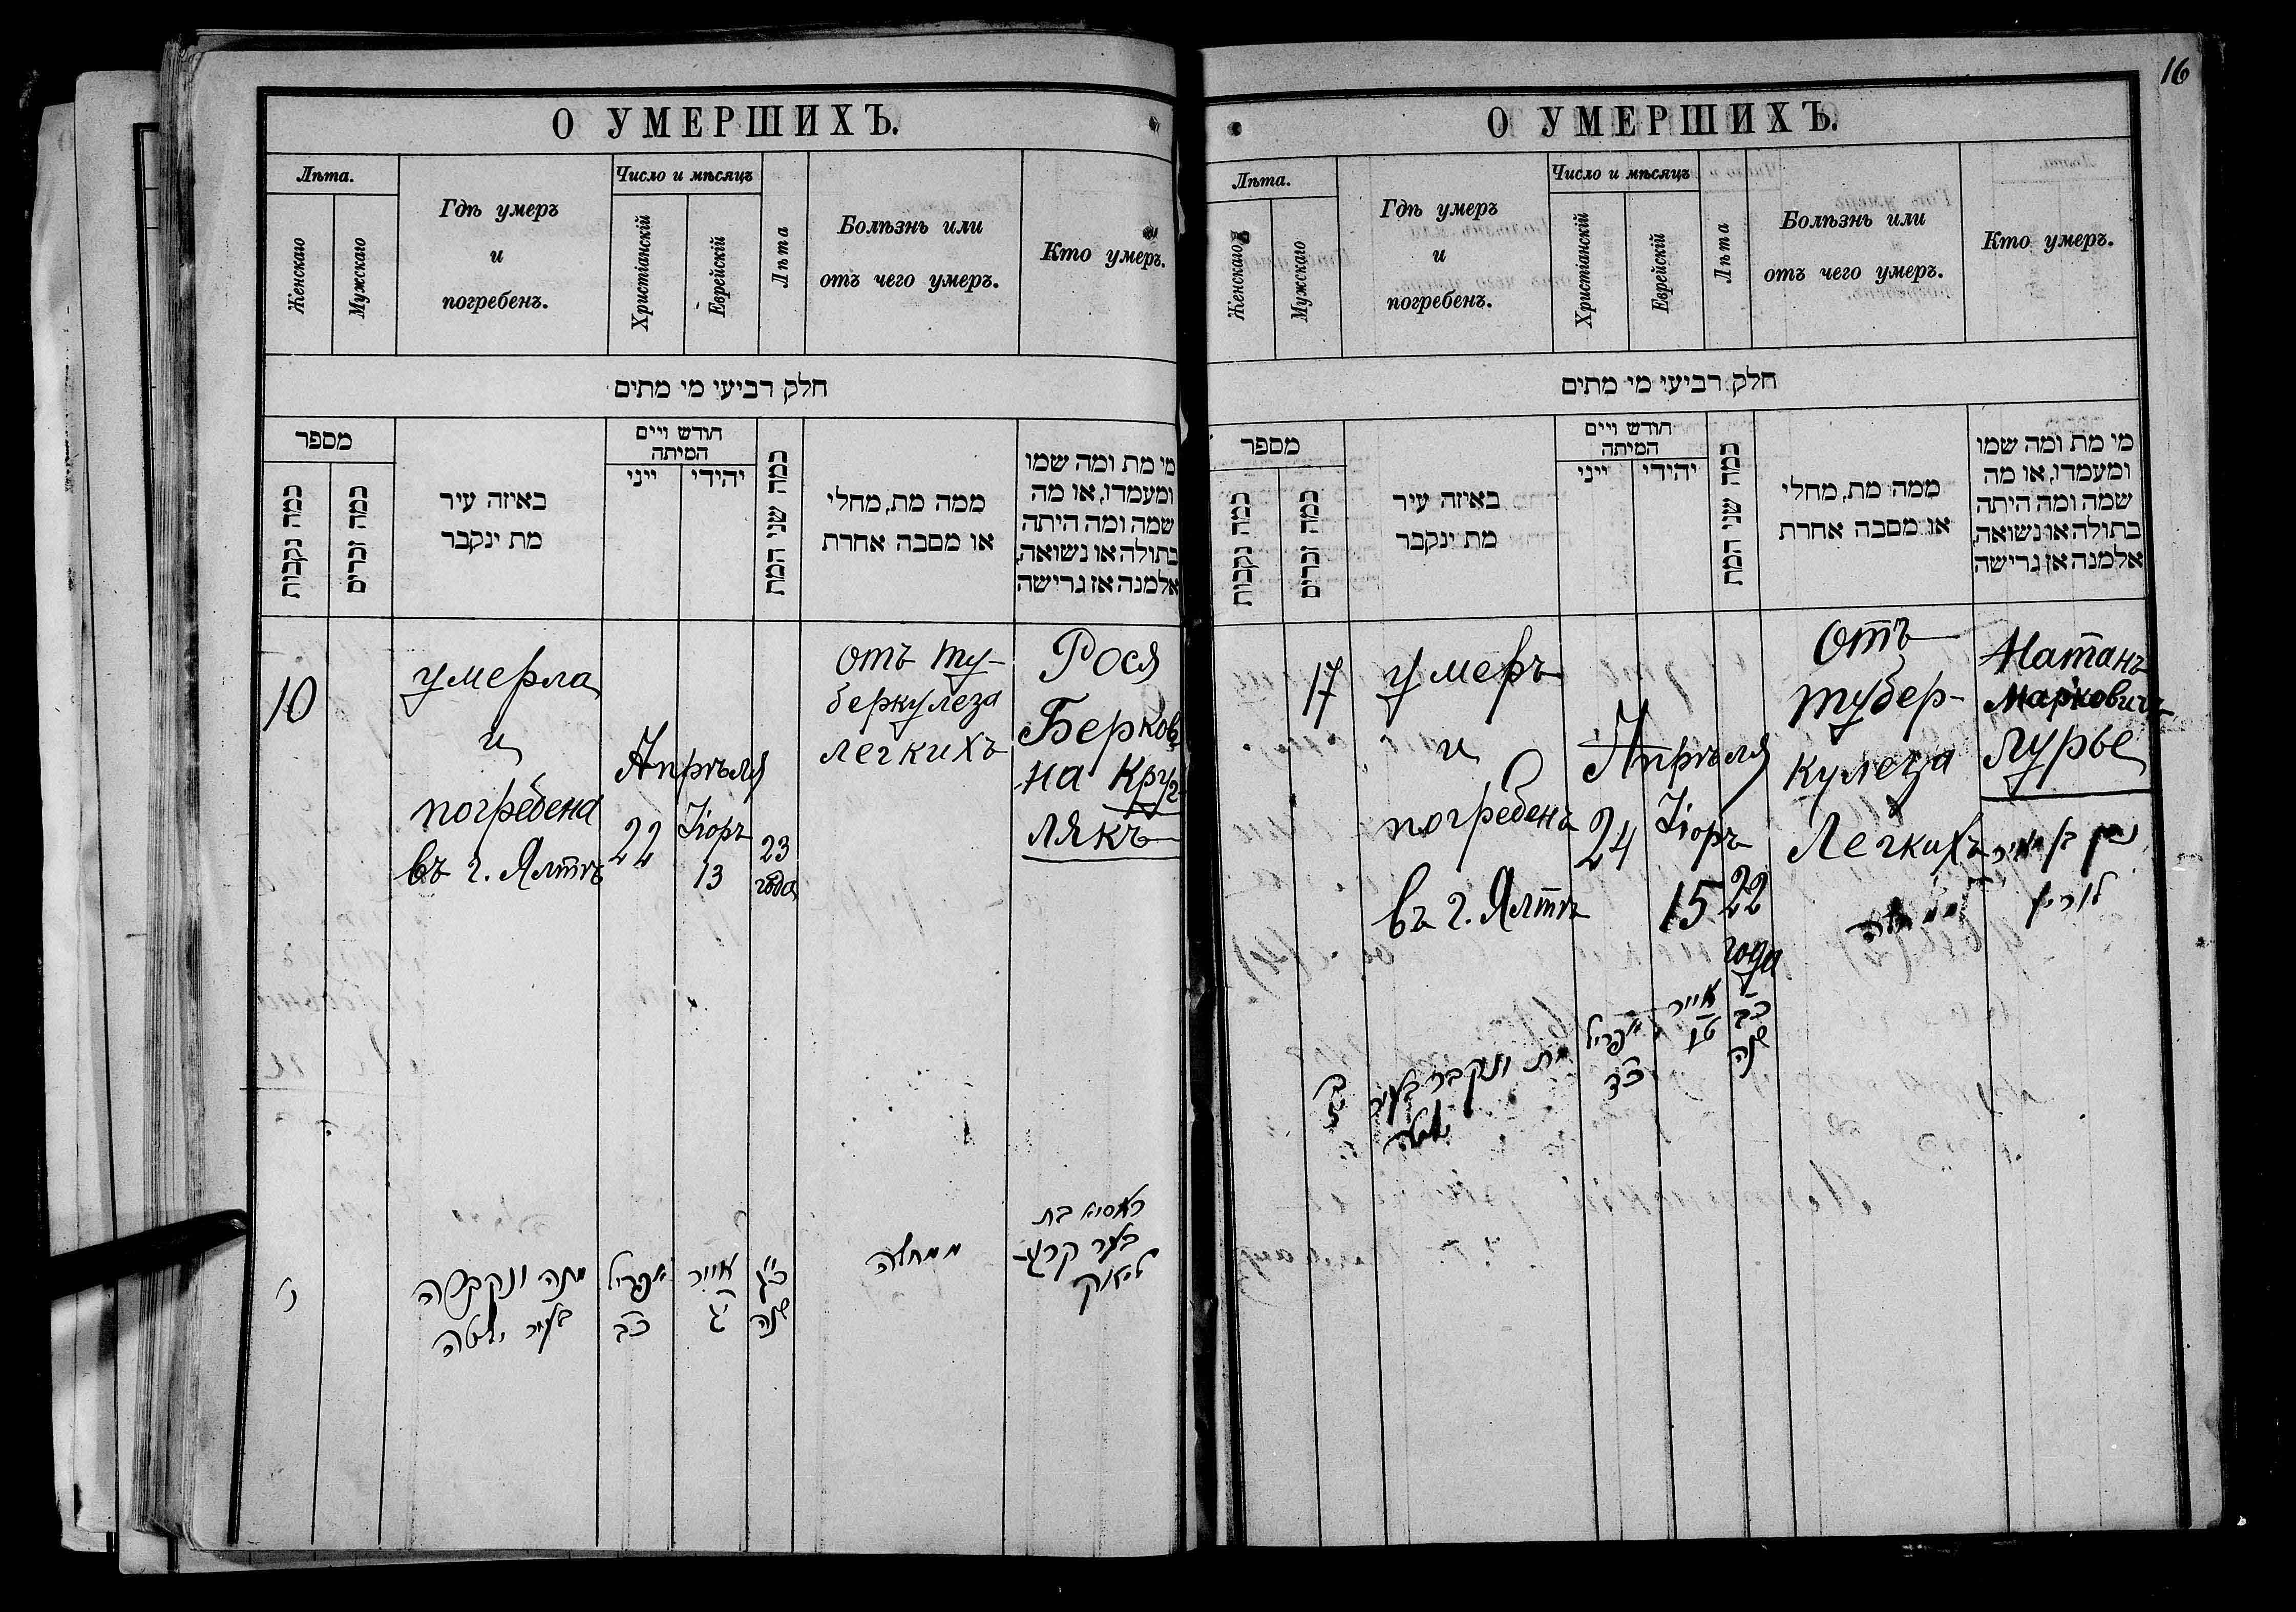 О УМЕРШИХЪ.
Лѣта.
Женскаго
Мужскаго
Гдѣ умеръ
и
погребенъ.
Число и мѣсяцъ
Христіанскій
Еврейскій
Лѣта
Болѣзнь или
отъ чего умеръ.
Кто умеръ.
חלק רביעי מי מתים
מספר
כמה נקבות
כמה זכרים
באיזה עיר
מת ינקבר
חודש ויים
המיתה
ייני
יהידי
כמה שני המת
ממה מת, מחלי
או מסבה אחרת
מי מת ומה שמו
ומעמדו, או מה
שמה ומה היתה
בתולה או נשואה,
אלמנה אז גרישה
10
умерла
и
погребена
въ г. Ялтѣ
Апрѣля
22
Іюръ
13
23
года
отъ ту-
беркулеза
легкихъ
Рося
Берков
на Круг
лякъ
י
מתה ונקברה
בעיר יאלטה
אפריל
כב
אייר
יג
כג
שנה
ממחלה
ראסיא בת
בער קרוג-
ליאק
16
О УМЕРШИХЪ.
Лѣта.
Женскаго
Мужскаго
Гдѣ умеръ
и
погребенъ.
Число и мѣсяцъ
Христіанскій
Еврейскій
Лѣта
Болѣзнь или
отъ чего умеръ.
Кто умеръ.
חלק רביעי מי מתים
מספר
כמה נקבות
כמה זכרים
באיזה עיר
מת ינקבר
חודש ויים
המיתה
ייני
יהידי
כמה שני המת
ממה מת, מחלי
או מסבה אחרת
מי מת ומה שמו
ומעמדו, או מה
שמה ומה היתה
בתולה או נשואה,
אלמנה אז גרישה
17
умеръ
и
погребенъ
въ г. Ялтѣ
Апрѣля
24
Іюръ
15
22
года
отъ
тубер-
кулеза
Легкихъ
Натанъ
Марковичъ
Лурье
נתן בן מאיר
לוריא
מת ונקבר בעיר
אפריל
כד
אייר
טו
כב
שנה